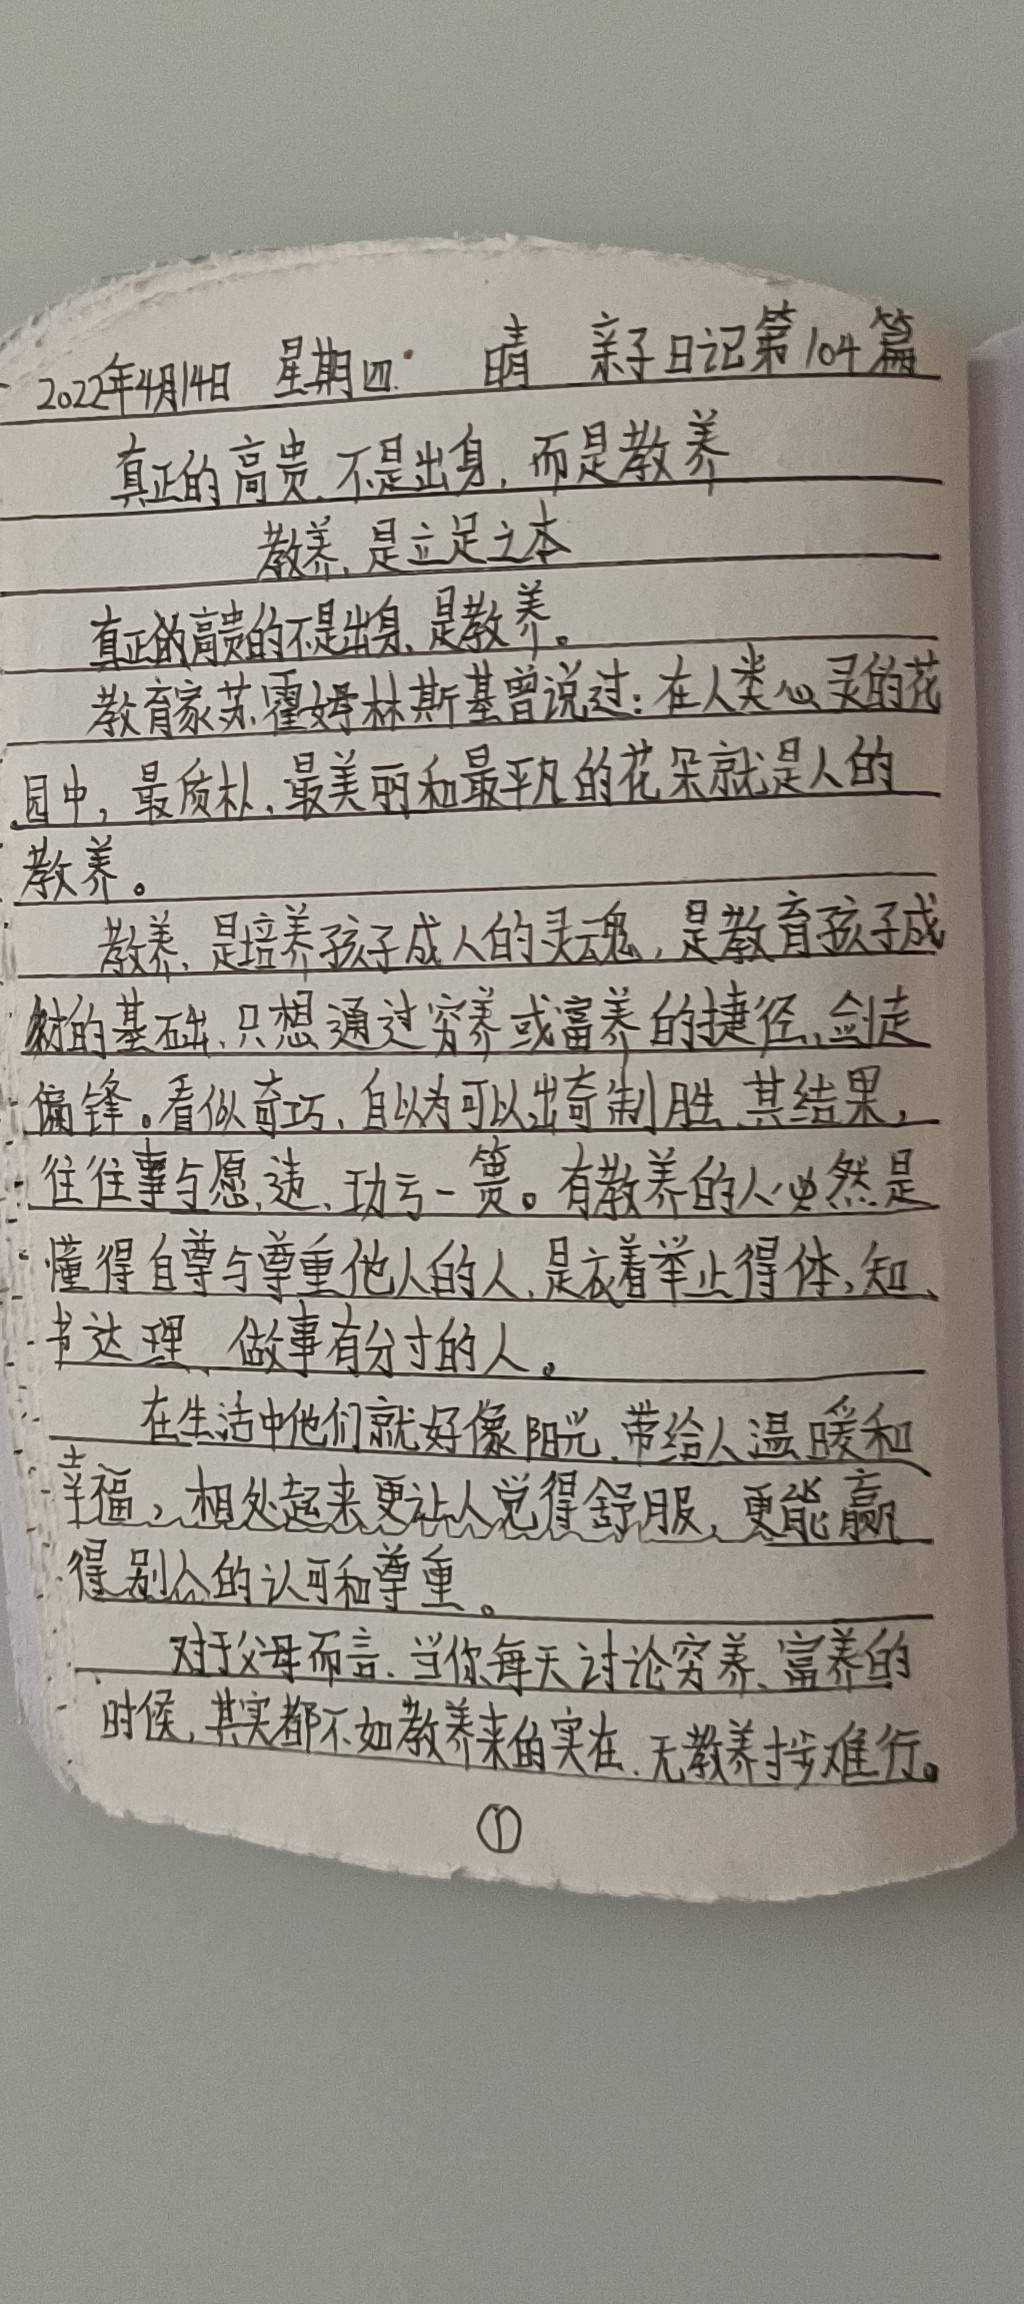 2022年4月14日 星期四 晴 亲子日记第104篇
真正的高贵、不是出身，而是教养
教养、是立足之本
真正的高贵的不是出身、是教养。
教育家苏霍姆林斯基曾说过：在人类心灵的花
园中，最质朴、最美丽和最平凡的花朵就是人的
教养。
教养、是培养孩子成人的灵魂，是教育孩子成
材的基础、只想通过穷养或富养的捷径、剑走
偏锋。看似奇巧、自以为可以出奇制胜、其结果，
往往事与愿违、功亏一篑。有教养的人必然是
懂得自尊与尊重他人的人、是衣着举止得体，知
书达理、做事有分寸的人。
在生活中他们就好像阳光、带给人温暖和
幸福，相处起来更让人觉得舒服、更能赢
得别人的认可和尊重。
对于父母而言、当你每天讨论穷养、富养的
时候，其实都不如教养来的实在、无教养寸步难行。
①